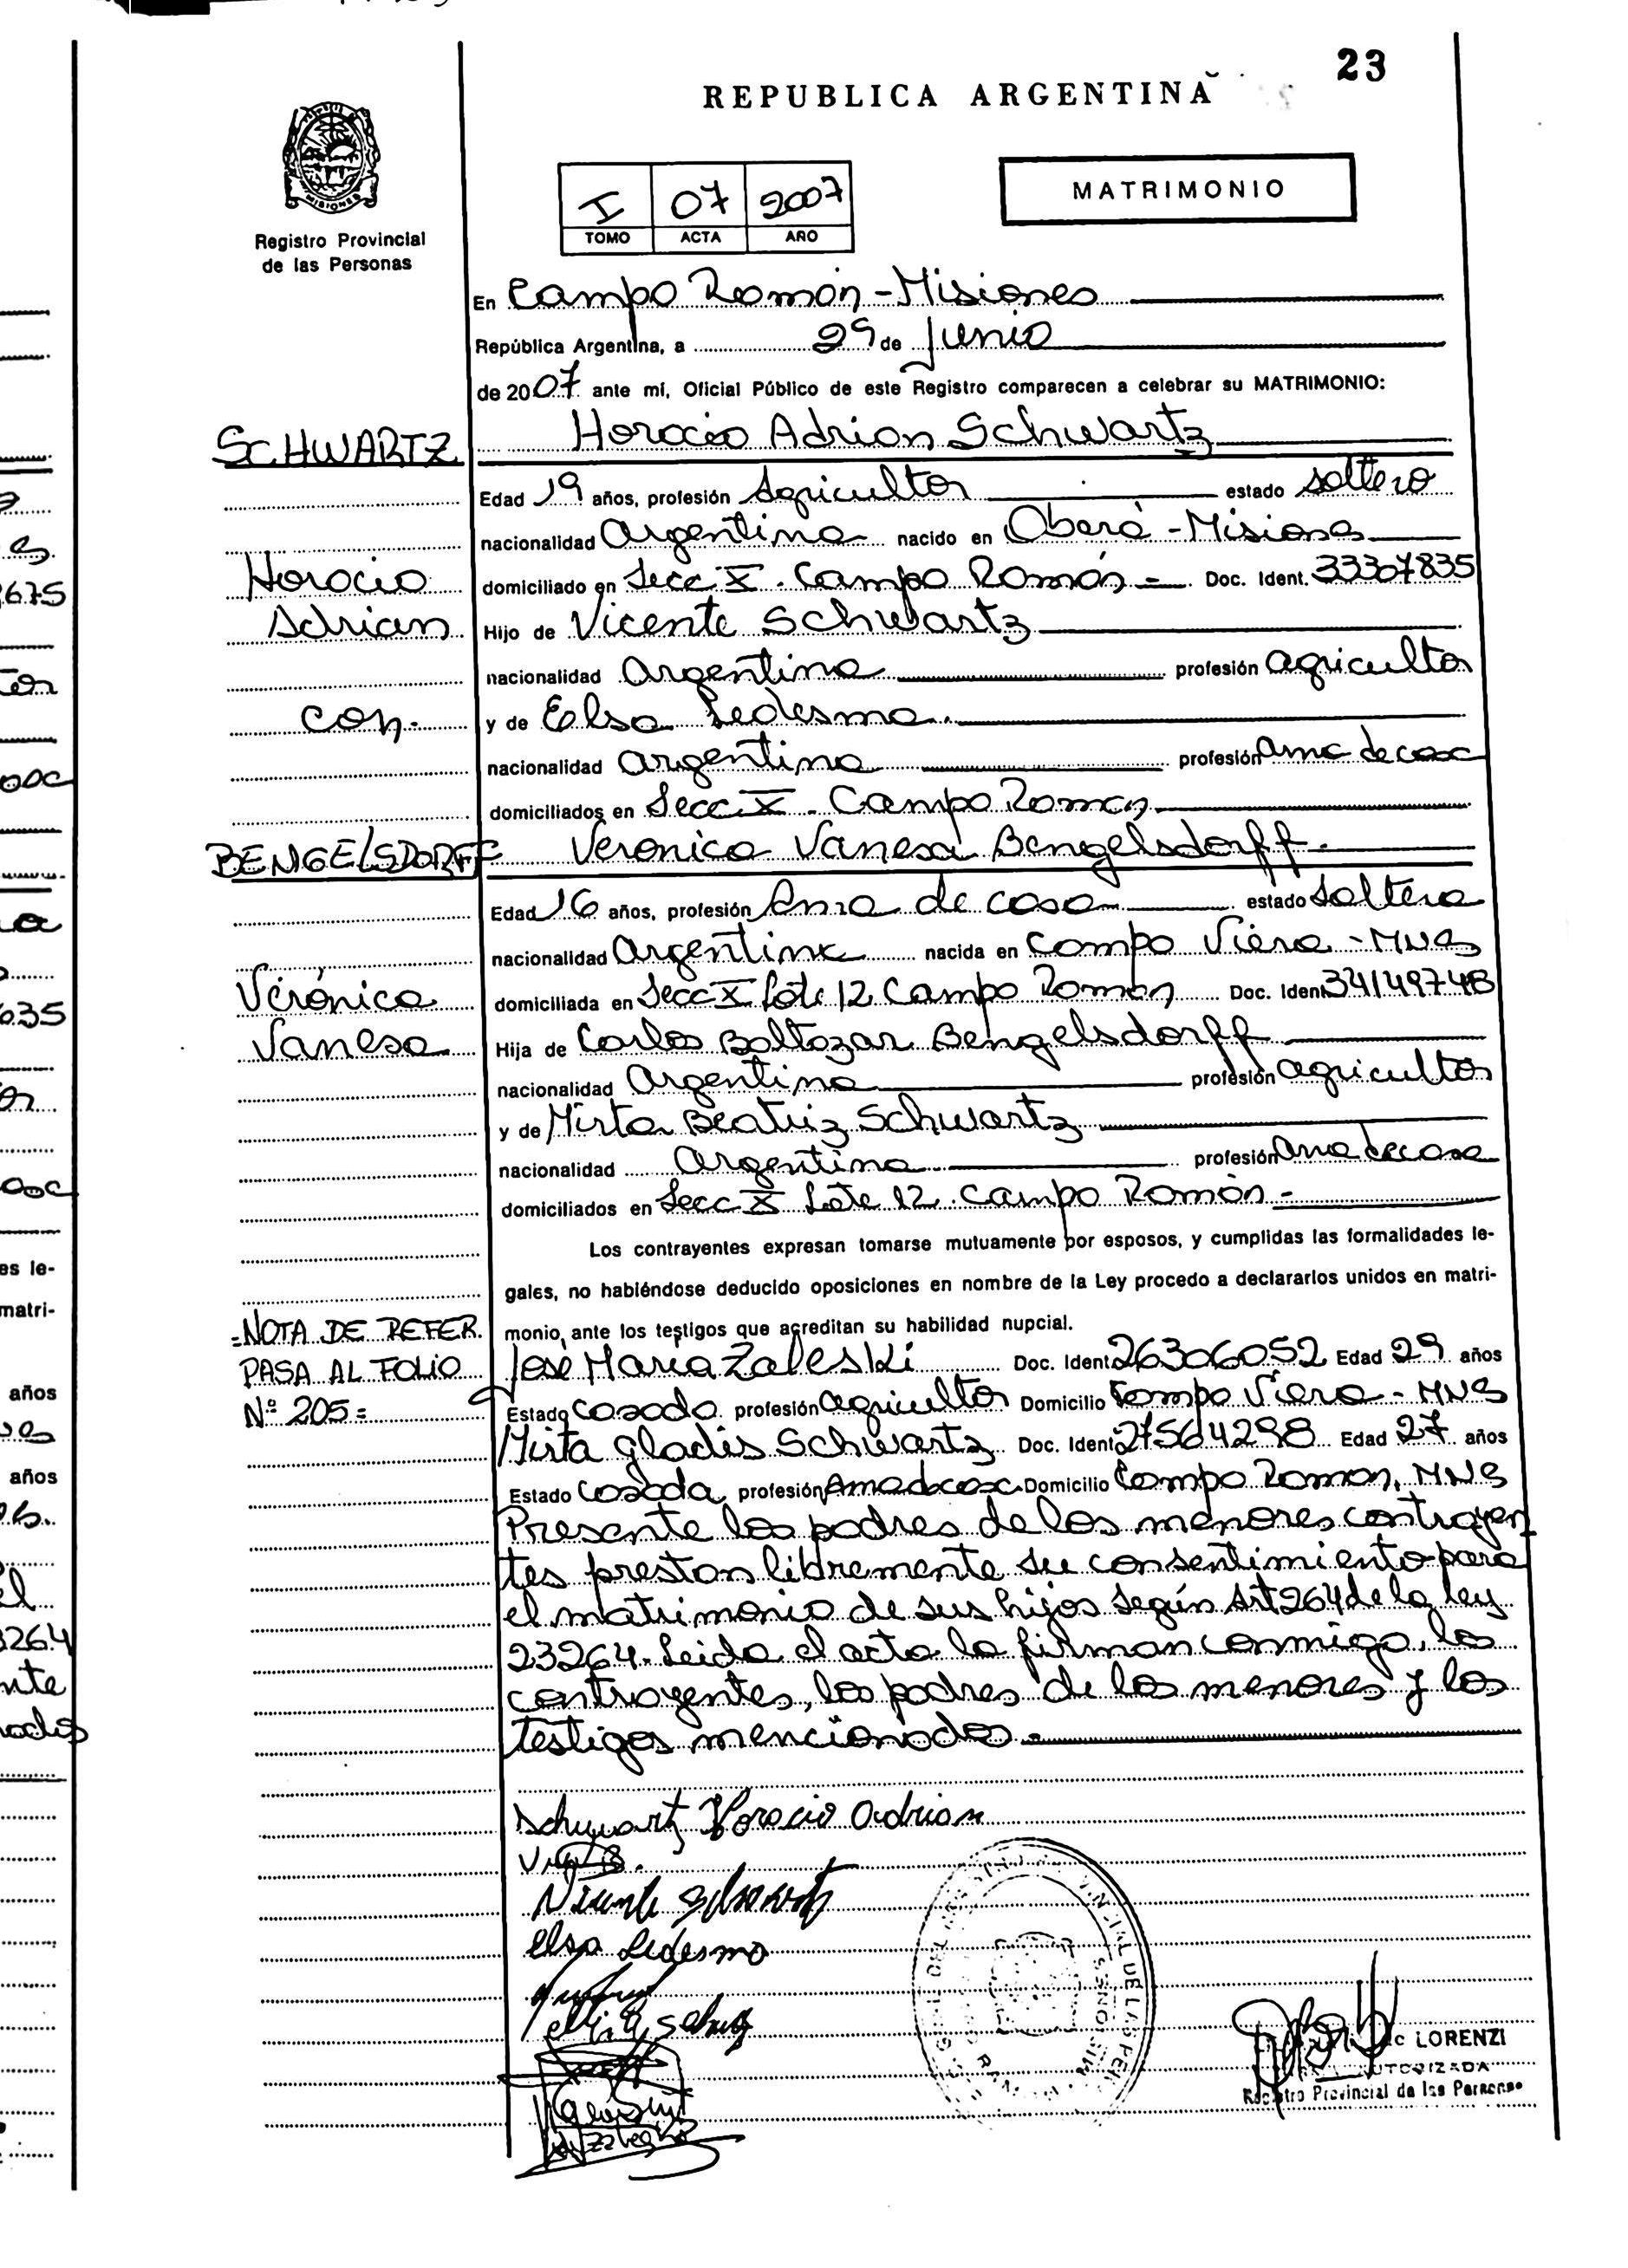 23
REPUBLICA ARGENTINA
MISIONES
Registro Provincial
de las Personas
I 07 2007
TOMO ACTA AÑO
MATRIMONIO
En Campo Ramón - Misiones
República Argentina, a 29 de Junio
de 2007 ante mí, Oficial Público de este Registro comparecen a celebrar su MATRIMONIO:
SCHWARTZ Horacio Adrian Schwartz
Edad 19 años, profesión Agricultor estado soltero
nacionalidad Argentina nacido en Oberá - Misiones
Horacio domiciliado en Secc X. Campo Ramón - Doc. Ident. 33307835
Adrian Hijo de Vicente Schwartz
nacionalidad Argentina profesión agricultor
con. y de Elsa Ledesma.
nacionalidad argentina profesión ama de casa
domiciliados en Secc X. Campo Ramon
BENGELSDORFF Veronica Vanesa Bengelsdorff.
Edad 16 años, profesión Ama de casa estado Soltera
nacionalidad Argentina nacida en Campo Viera - MNES
Verónica domiciliada en Secc X Lote 12 Campo Ramon Doc. Ident. 34149748
Vanesa Hija de Carlos Baltazar Bengelsdorff
nacionalidad Argentina profesión agricultor
y de Mirta Beatriz Schwartz
nacionalidad Argentina profesión Ama de casa
domiciliados en Secc X Lote 12. Campo Ramón -
Los contrayentes expresan tomarse mutuamente por esposos, y cumplidas las formalidades le-
gales, no habiéndose deducido oposiciones en nombre de la Ley procedo a declararlos unidos en matri-
=NOTA DE REFER. monio, ante los testigos que acreditan su habilidad nupcial.
PASA AL FOLIO José Maria Zaleski Doc. Ident. 26306052 Edad 29 años
Nº 205= Estado casado profesión agricultor Domicilio Campo Viera - MNES
Mirta Gladis Schwartz Doc. Ident. 27564298 Edad 27 años
Estado casada profesión Ama de casa Domicilio Campo Ramon, MNES
Presente los padres de los menores contrayen
tes prestan libremente su consentimiento para
el matrimonio de sus hijos según Art 264 de la ley
23264. Leida el acta la firman conmigo, los
contrayentes, los padres de los menores y los
testigos mencionados.
Schwartz Horacio Adrian
Vicente Schwartz
elsa Ledesma
LORENZI
AUTORIZADA
Registro Provincial de las Personas